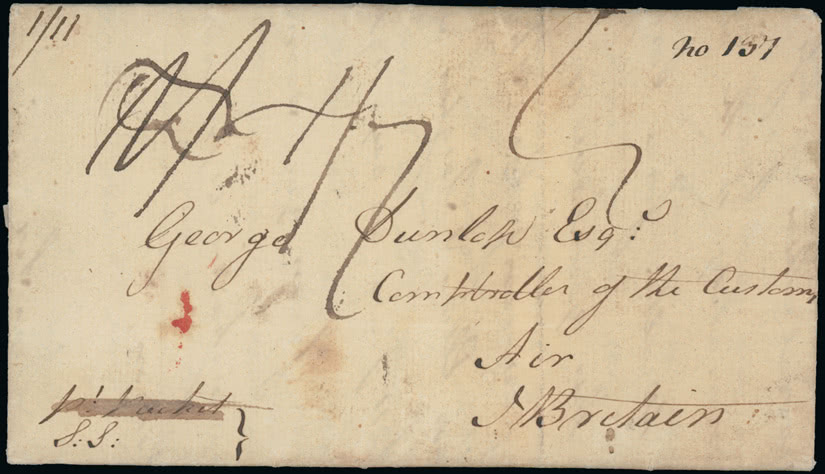 1/11
no 137
George Dunlop Esqr:
Comptroller of the Customs
Air
Britain
pr. Packet
S: S: